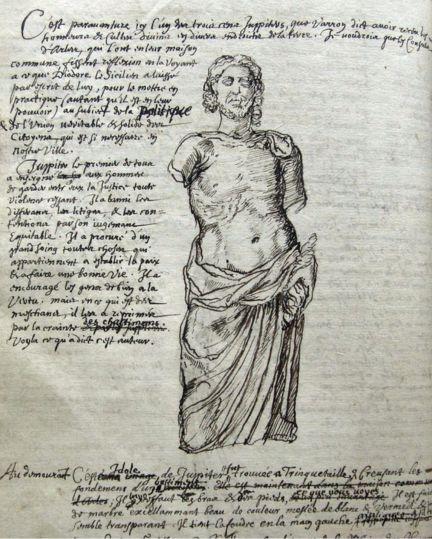 C'est paravanture icy l'un des trois cens Juppiters, que Varron dict avoir receu les
honneurs & cultes divins en divers endroits de la terre. Je voudrois que les Consuls
d'Arles, qui l'ont en leur maison
commune fissent reflexion en le voyant
a ce que Diodore le Sicilien a laissé
par escrit de luy, pour le mettre en
practique (autant qu'il est en leur
pouvoir) au subiect de la Politesse
& de l'Union veritable & solide des
Citoyens, qui est si necessaire en
Nostre Ville.
Juppiter le premier de tous
a enseigné aux hommes
de garder entr eux la Justice toute
violence cessant. Il a banni les
differans, les litiges, & les con-
tentions par son jugement
Equitable. Il a procuré d'un
grand soing toutes choses qui
appartienent a establir la paix
& a faire une bonne Vie. Il a
encouragé les gens de bien a la
Vertu. mais en ce qui est des
meschans, il les a reprimés
par la crainte des chastimens.
Voyla ce qu'a dict c'est auteur.
Au demeurat C'est Idole de Jupiter fust trouvée a Trinquetaille, & creusant les
fondemens d'un bastiment
Il bras & pieds, ce que vous voyes Il est fait
de marbre excellammant beau de couleur meslée de blanc & vermeil
semble transparant. Il tient la foudre en la main gauche